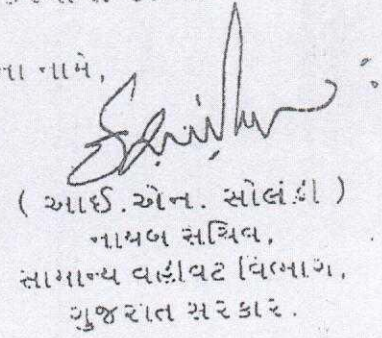 ના નામે,
( આઈ.એન. સોલંકી )
નાયબ સચિવ,
સામાન્ય વહીવટ વિભાગ,
ગુજરાત સરકાર.